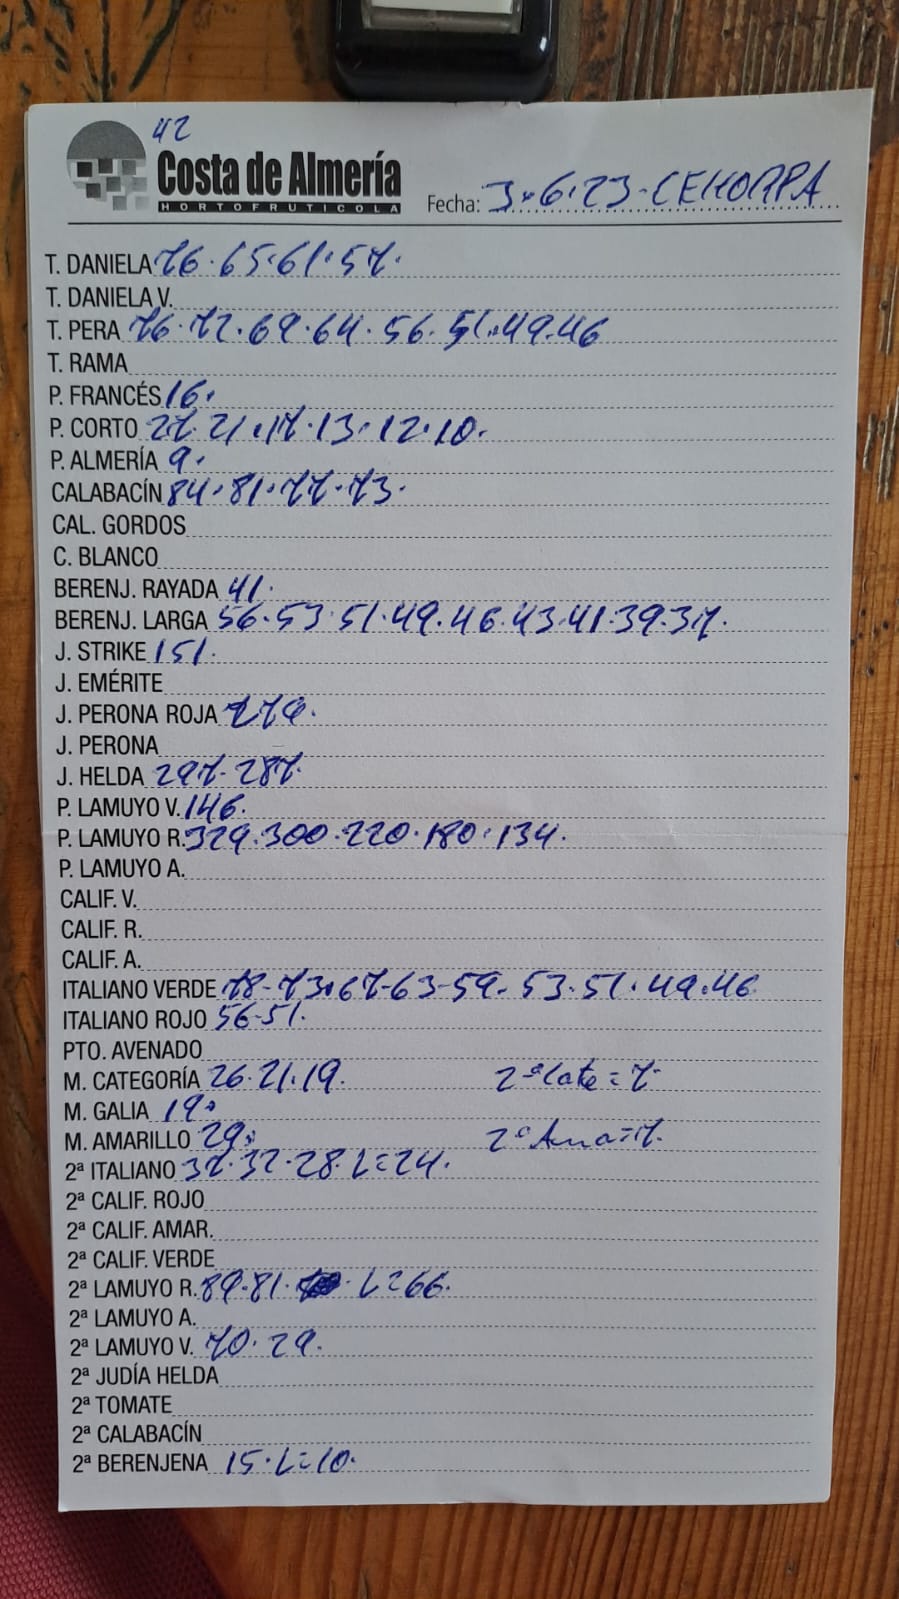 42
Costa de Almería
HORTOFRUTICOLA
Fecha: 3.6.23-CEHORPA
T. DANIELA 76.65.61.57.
T. DANIELA V.
T. PERA 76.72.69.64.56.51.49.46
T. RAMA
P. FRANCÉS 16.
P. CORTO 27.21.17.13.12.10.
P. ALMERÍA 9.
CALABACÍN 84.81.77.73.
CAL. GORDOS
C. BLANCO
BERENJ. RAYADA 41.
BERENJ. LARGA 56.53.51.49.46.43.41.39.37.
J. STRIKE 151.
J. EMÉRITE
J. PERONA ROJA
J. PERONA
J. HELDA 297.287.
P. LAMUYO V. 146.
P. LAMUYO R. 329.300.220.180.134.
P. LAMUYO A.
CALIF. V.
CALIF. R.
CALIF. A.
ITALIANO VERDE 78-73.67-63-59.53.51.49.46
ITALIANO ROJO 56-51.
PTO. AVENADO
M. CATEGORÍA 26.21.19. 2ª cate=7-
M. GALIA 19.
M. AMARILLO 29. 2ª Ama=7.
2ª ITALIANO 37.32.28.L=24.
2ª CALIF. ROJO
2ª CALIF. AMAR.
2ª CALIF. VERDE
2ª LAMUYO R. 89.81. L=66.
2ª LAMUYO A.
2ª LAMUYO V. 70.29.
2ª JUDÍA HELDA
2ª TOMATE
2ª CALABACÍN
2ª BERENJENA 15.L=10.